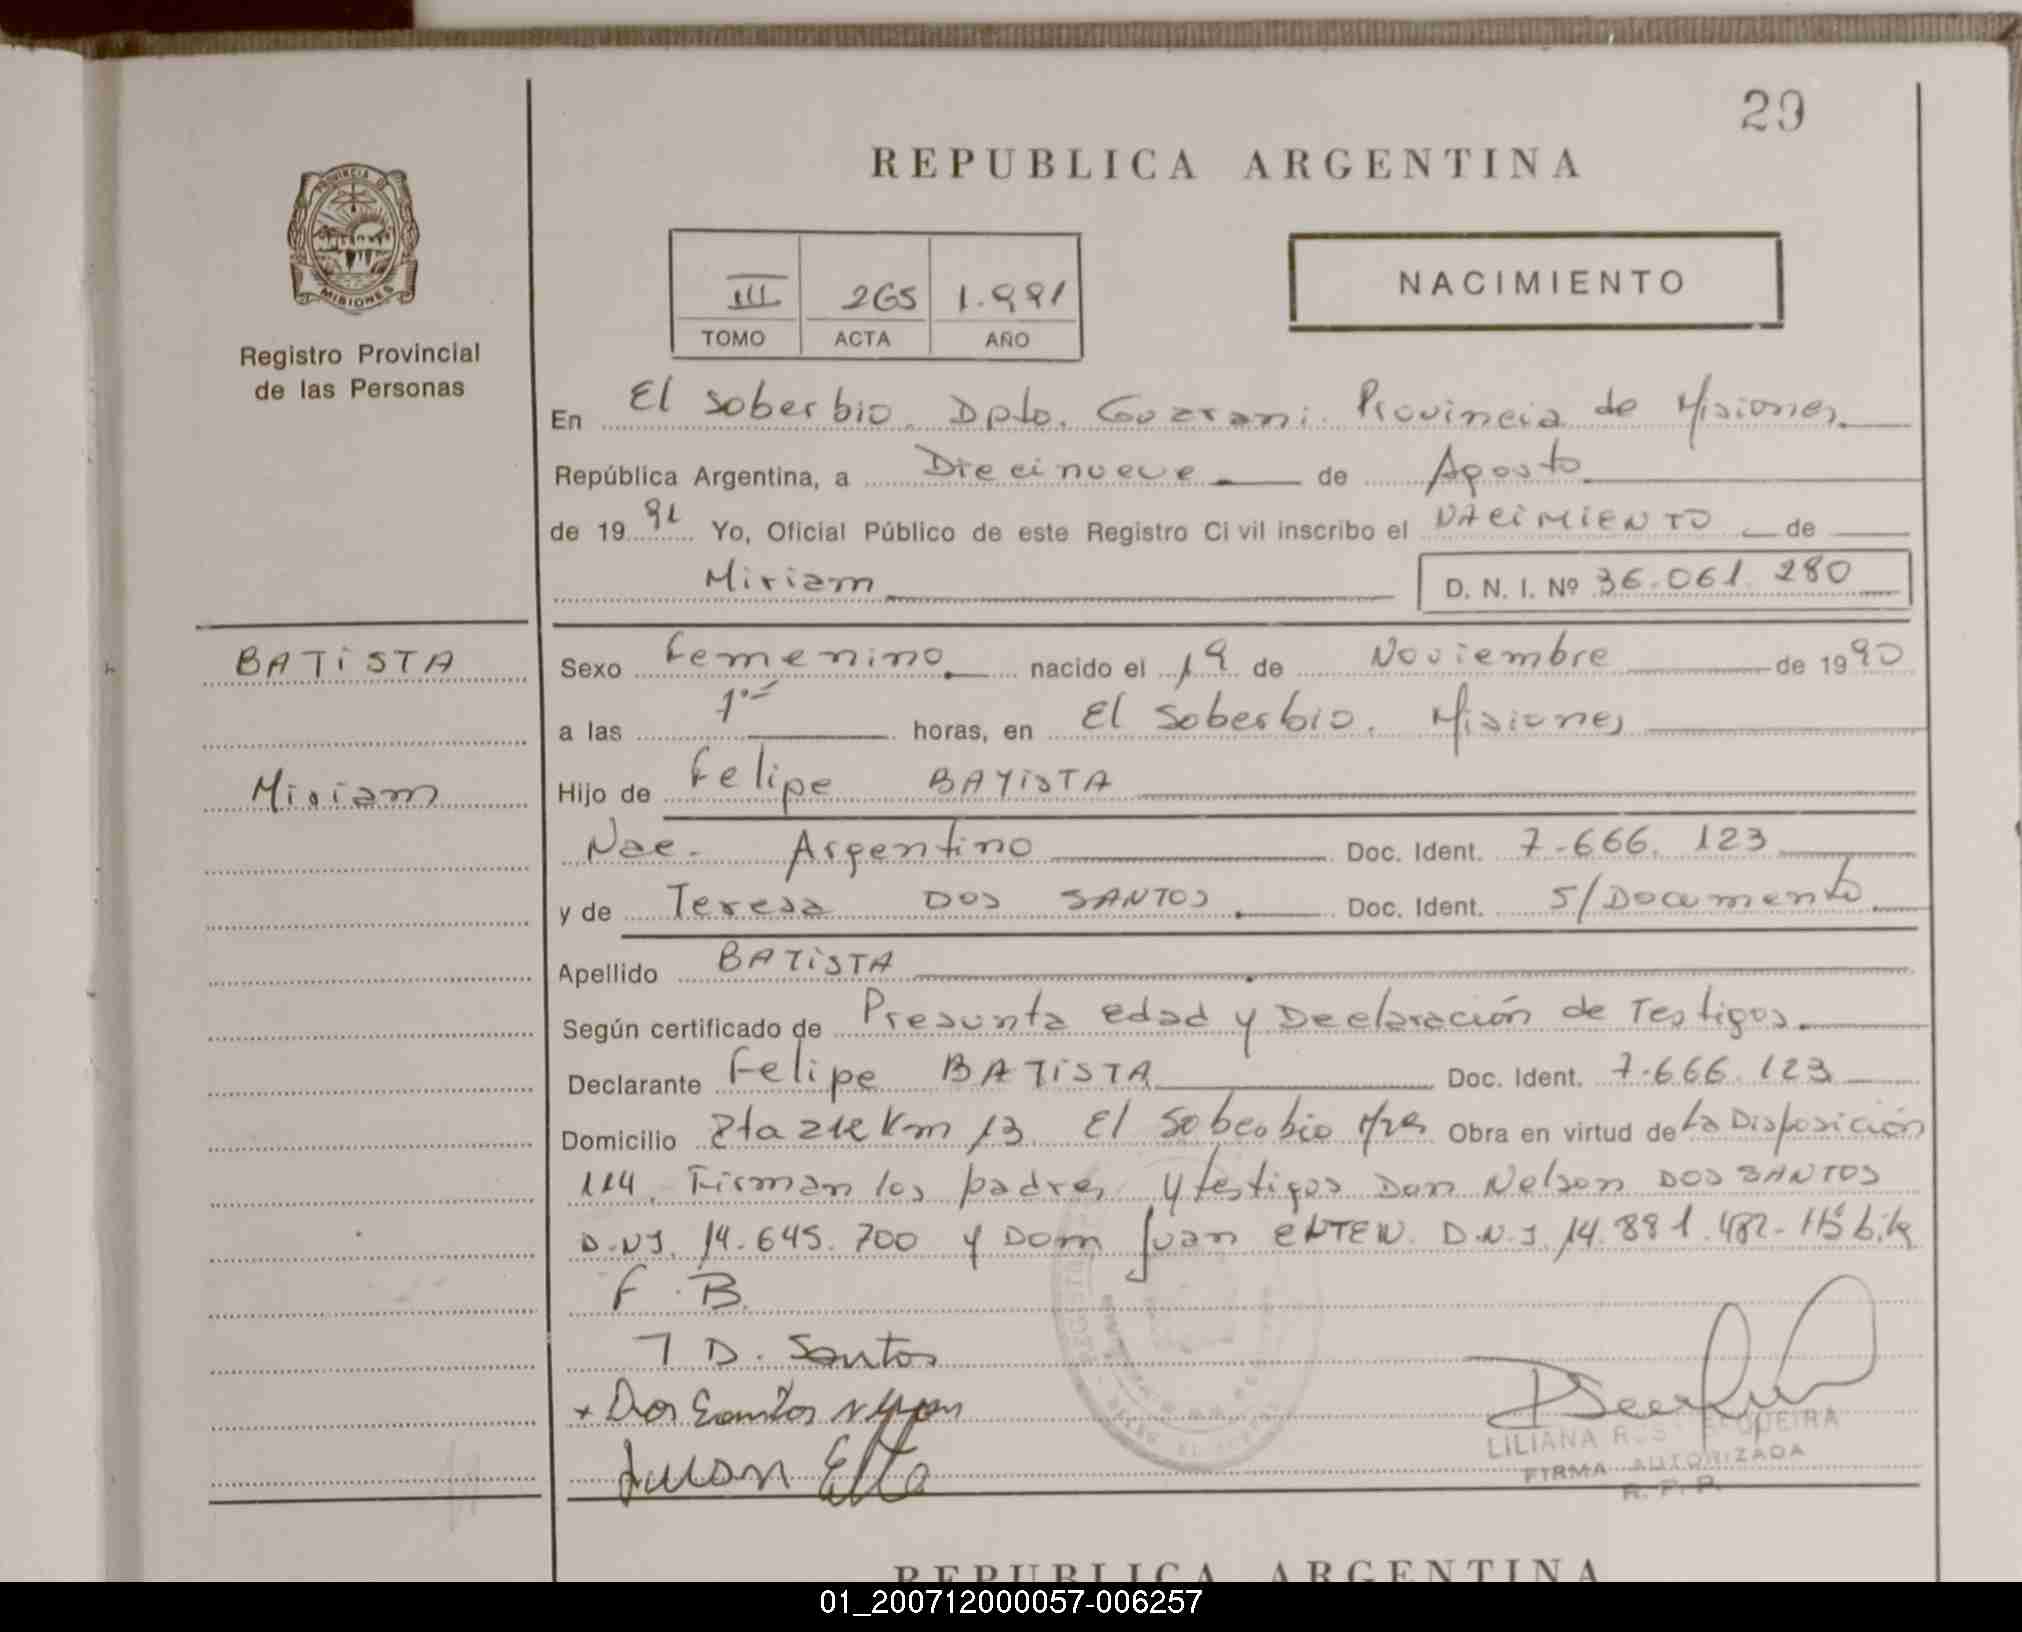 29
REPUBLICA ARGENTINA
PROVINCIA DE
MISIONES
Registro Provincial
de las Personas
III 265 1.991
TOMO ACTA AÑO
NACIMIENTO
En El Soberbio. Dpto. Guarani. Provincia de Misiones.
República Argentina, a Diecinueve de Agosto
de 1991 Yo, Oficial Público de este Registro Civil inscribo el NACIMIENTO de
Miriam D. N. I. Nº 36.061.280
BATISTA
Miriam
Sexo Femenino nacido el 19 de Noviembre de 1990
a las horas, en El Soberbio. Misiones
Hijo de Felipe BATISTA
Nac. Argentino Doc. Ident. 7.666.123
y de Teresa DOS SANTOS Doc. Ident. S/Documento
Apellido BATISTA
Según certificado de Presunta edad y Declaración de Testigos.
Declarante Felipe BATISTA Doc. Ident. 7.666.123
Domicilio Km 13 El Soberbio Obra en virtud de La Disposición
114. Firman los padres y testigos Don Nelson DOS SANTOS
D.N.I. 14.645.700 y Dom Juan D.N.I. 14.881.482-
F. B.
T D. Santos
x Dos Santos
Juan
LILIANA SEQUEIRA
FIRMA AUTORIZADA
R. P. P.
REPUBLICA ARGENTINA
01_200712000057-006257